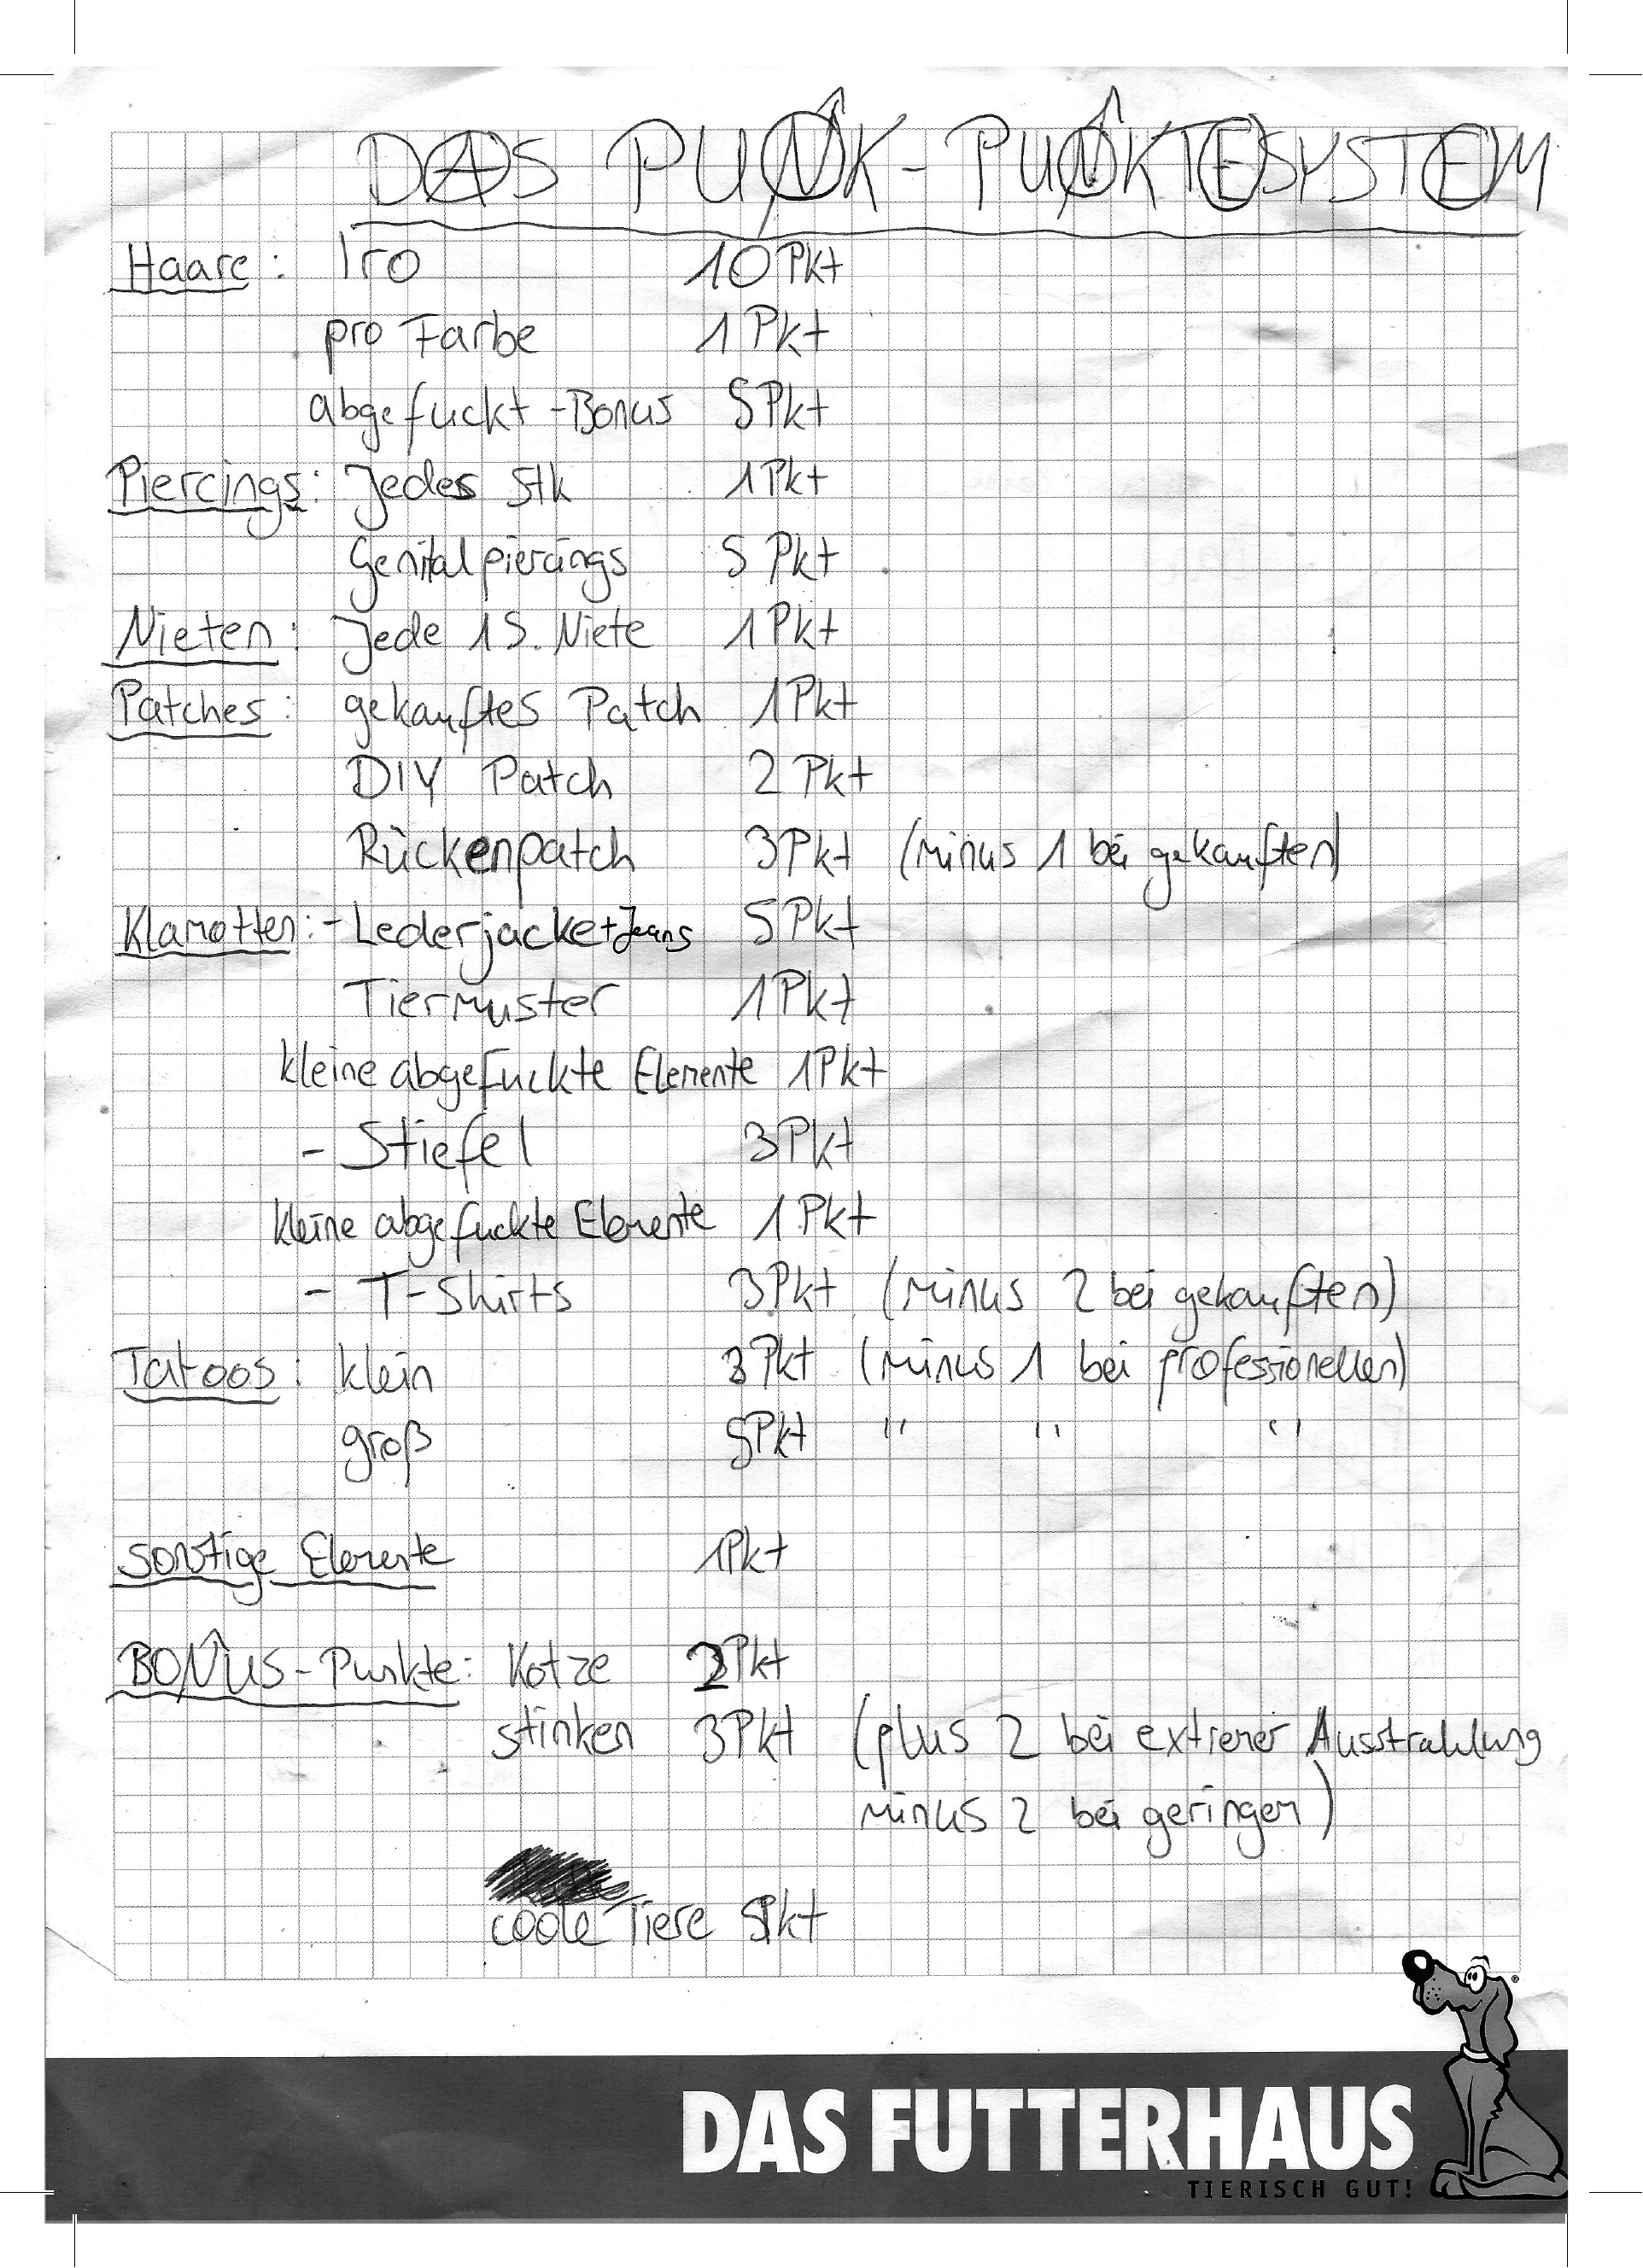 DAS PUNK-PUNKTESYSTEM
Haare: Iro 10 Pkt
pro Farbe 1 Pkt
abgefuckt-Bonus 5 Pkt
Piercings: Jedes Stk 1 Pkt
Genitalpiercings 5 Pkt
Nieten: Jede 15. Niete 1 Pkt
Patches: gekauftes Patch 1 Pkt
DIY Patch 2 Pkt
Rückenpatch 3 Pkt (minus 1 bei gekauften)
Klamotten: - Lederjacke + Jeans 5 Pkt
Tiermuster 1 Pkt
kleine abgefuckte Elemente 1 Pkt
- Stiefel 3 Pkt
kleine abgefuckte Elemente 1 Pkt
- T-Shirts 3 Pkt (minus 2 bei gekauften)
Tatoos: klein 3 Pkt (minus 1 bei professionellen)
groß 5 Pkt " " "
sonstige Elemente 1 Pkt
BONUS-Punkte: Kotze 2 Pkt
stinken 3 Pkt (plus 2 bei extremer Ausstrahlung
minus 2 bei geringer)
coole Tiere 5 Pkt
DAS FUTTERHAUS
TIERISCH GUT!